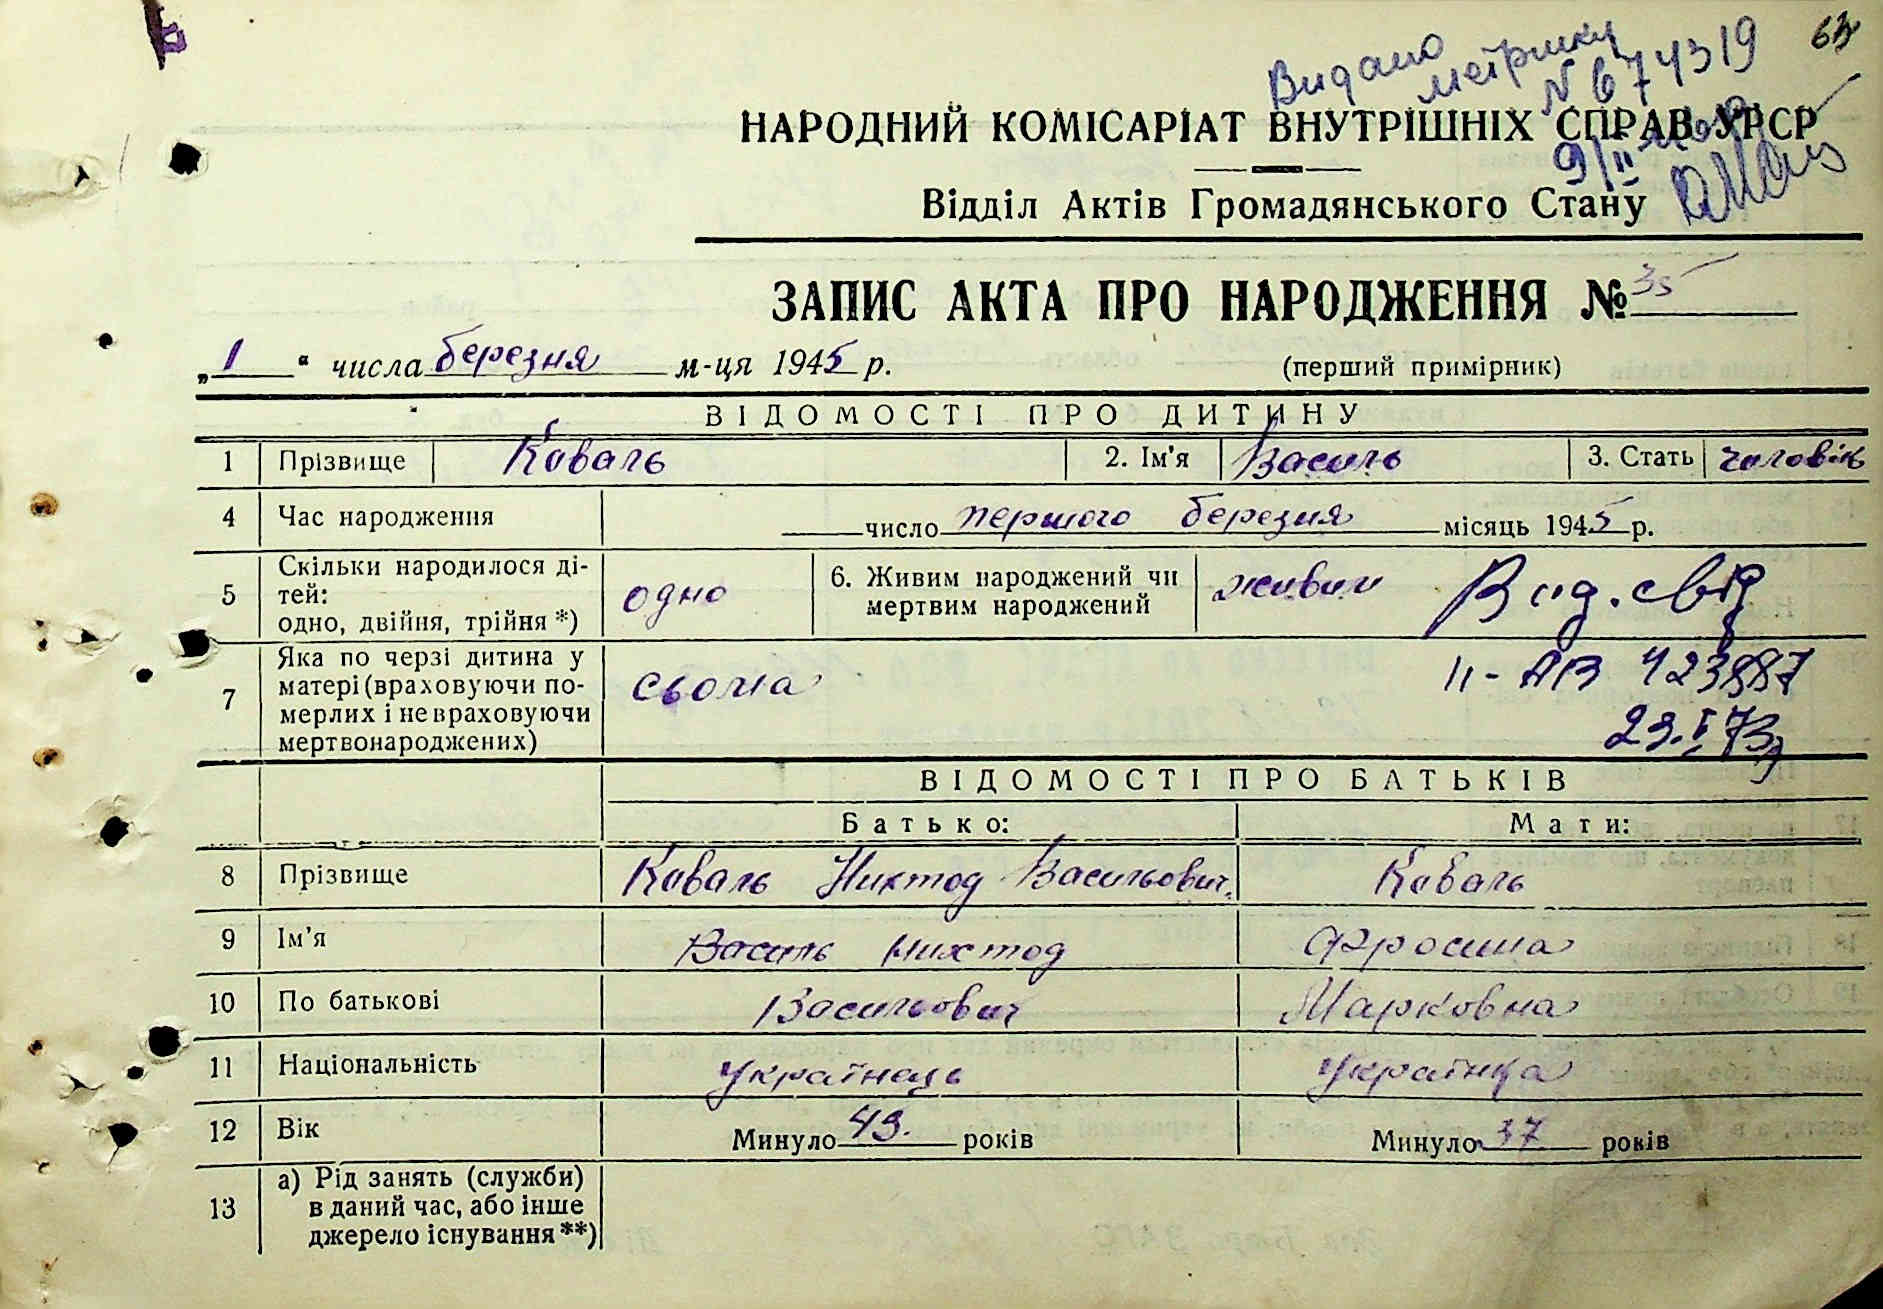 63
Видано
метрику
N 674319
НАРОДНИЙ КОМІСАРІАТ ВНУТРІШНІХ СПРАВ УРСР
9/II
Відділ Актів Громадянського Стану
ЗАПИС АКТА ПРО НАРОДЖЕННЯ № 35
„1“ числа березня м-ця 1945 р. (перший примірник)
ВІДОМОСТІ ПРО ДИТИНУ
1 Прізвище Коваль 2. Ім'я Василь 3. Стать чоловік
4 Час народження число першого березня місяць 1945 р.
5 Скільки народилося ді-
тей:
одно, двійня, трійня *) одно 6. Живим народжений чи
мертвим народжений живим
Вид. свід
7 Яка по черзі дитина у
матері (враховуючи по-
мерлих і не враховуючи
мертвонароджених) сьома
II-АВ 423887
23.I.73
ВІДОМОСТІ ПРО БАТЬКІВ
Батько: Мати:
8 Прізвище Коваль Никтод Васильович Коваль
9 Ім'я Василь Никтод Фросина
10 По батькові Васильович Марковна
11 Національність українець українка
12 Вік Минуло 43. років Минуло 37 років
13 а) Рід занять (служби)
в даний час, або інше
джерело існування **)